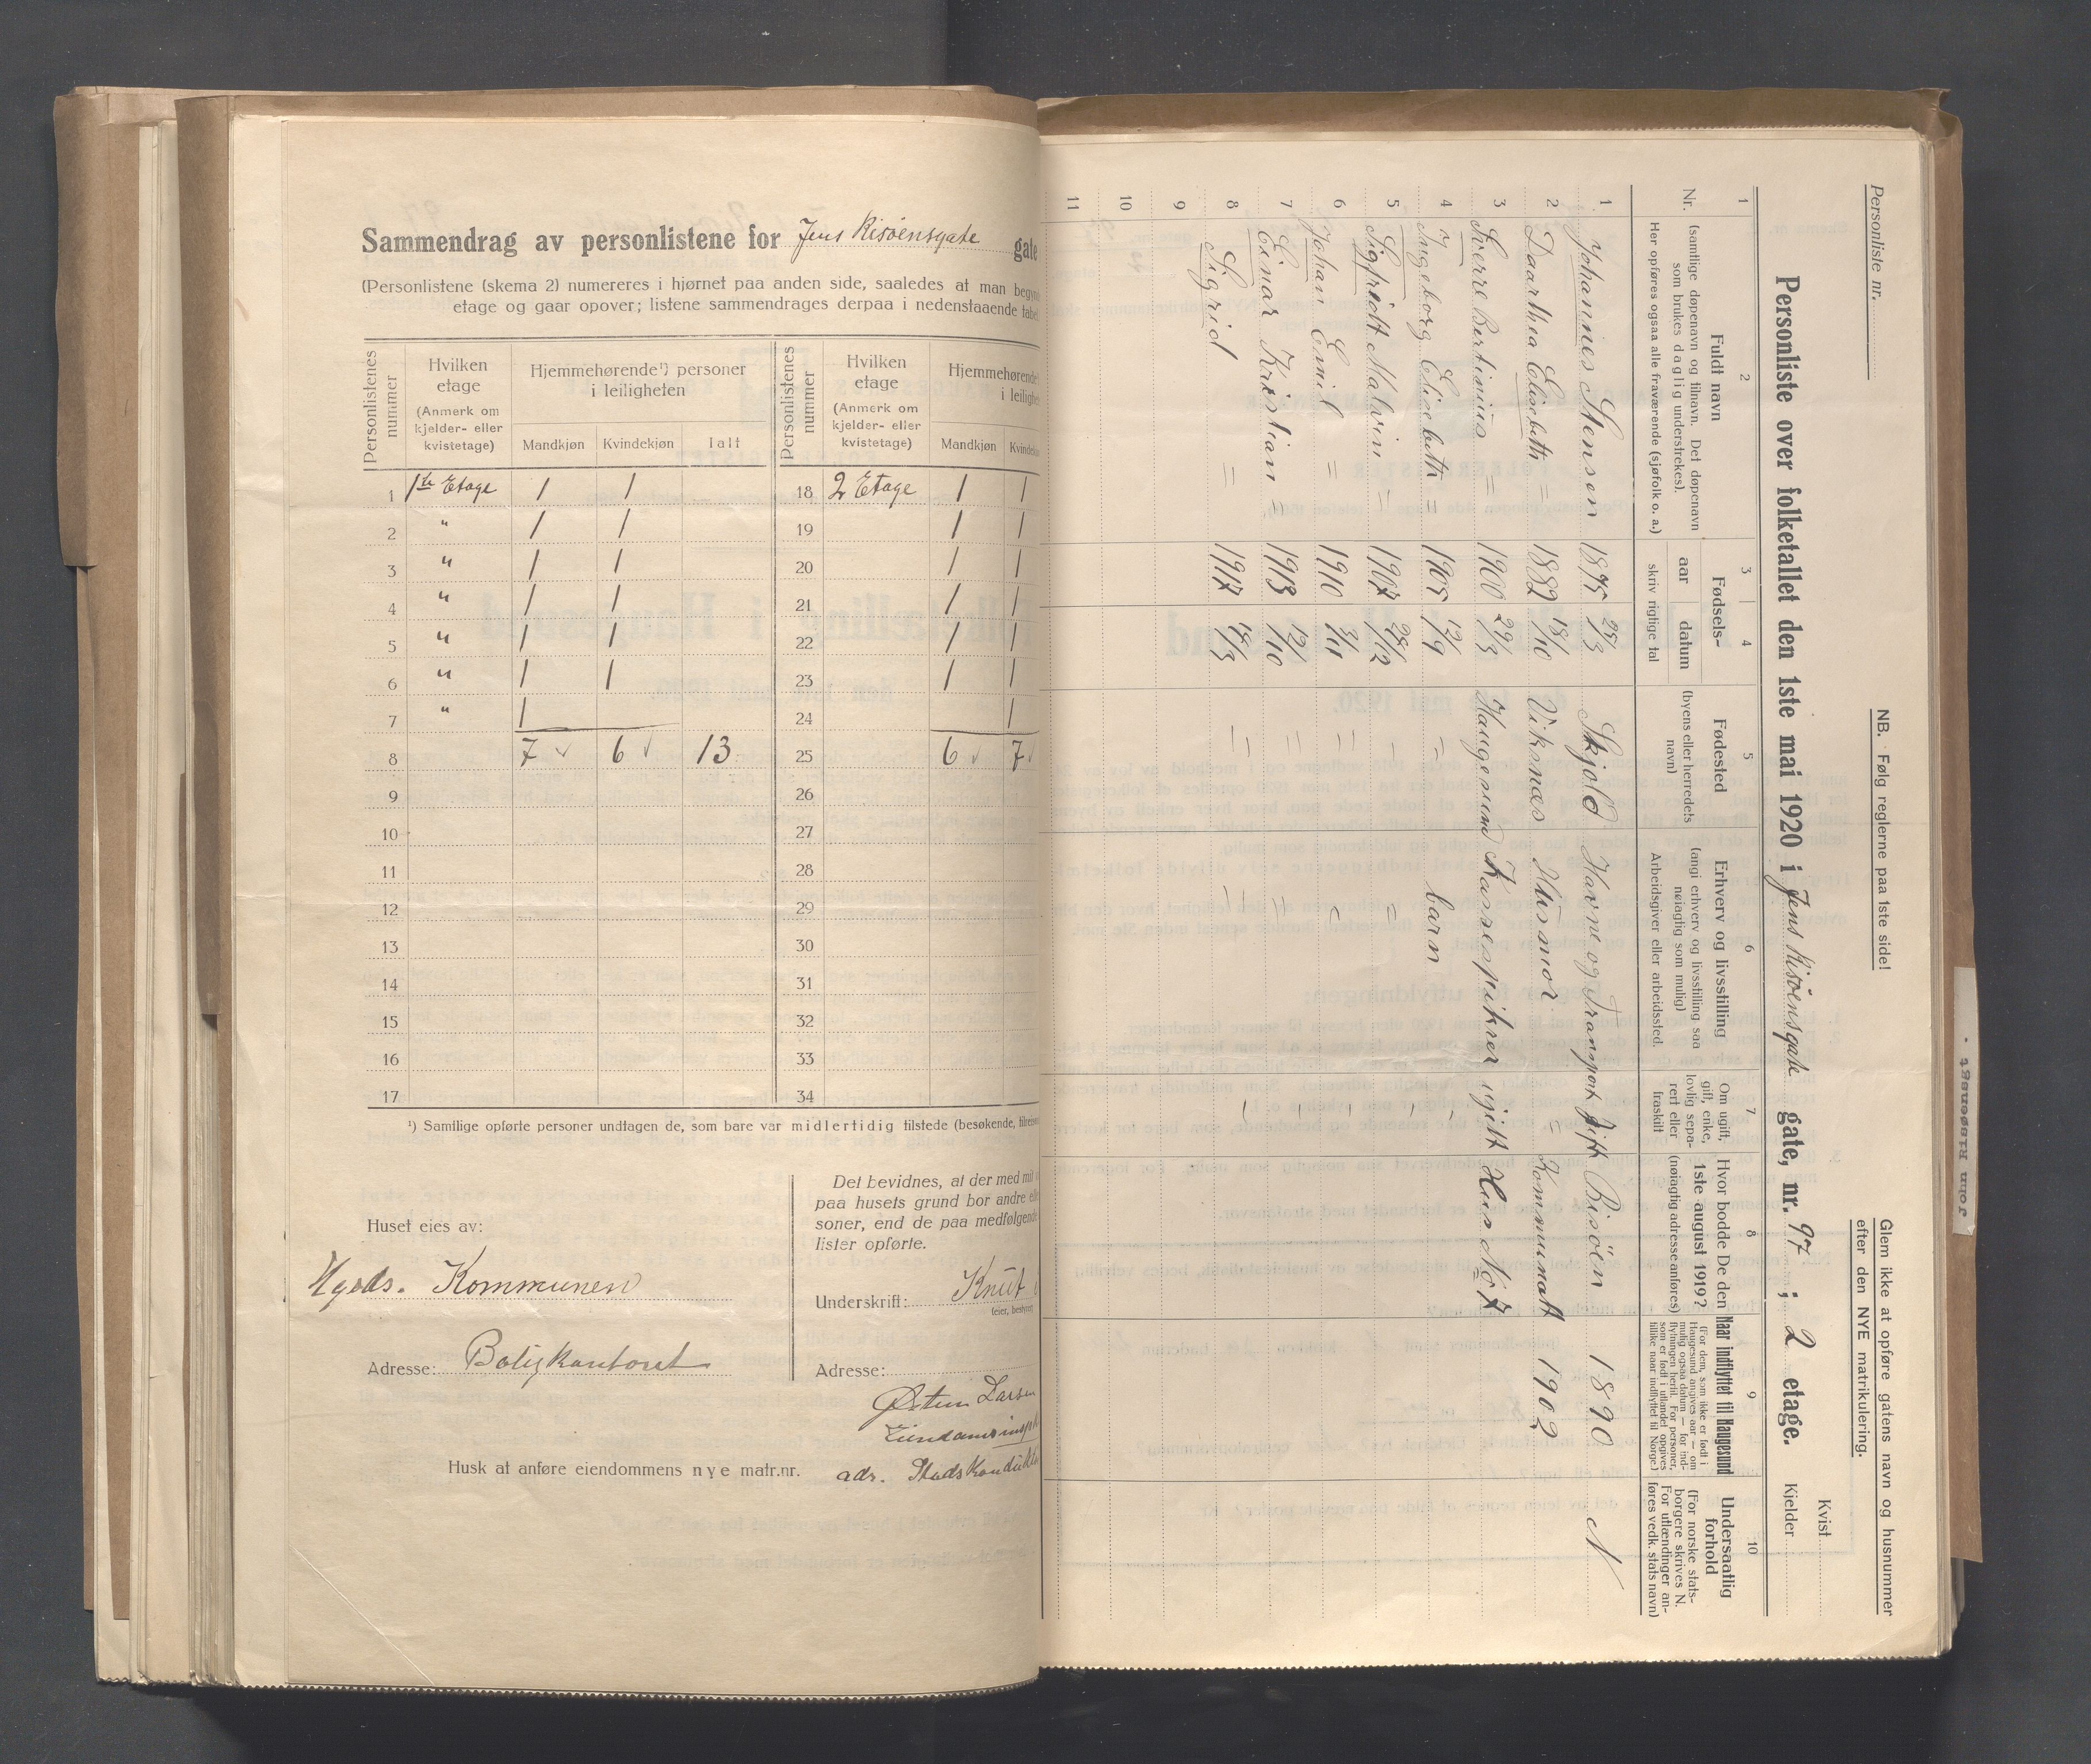 Sammendrag av personlistene for Jens Risøensgate gate
(Personlistene (skema 2) numereres i hjørnet paa anden side, saaledes at man begyn
etage og gaar opover; listene sammendrages derpaa i nedenstaaende tabel
Personlistenes nummer
Hvilken etage (Anmerk om kjelder- eller kvistetage)
Hjemmehørende¹) personer i leiligheten
Personlistenes nummer
Hvilken etage (Anmerk om kjelder- eller kvistetage)
Hjemmehørende i leilighe
Mandkjøn Kvindekjøn Ialt Mandkjøn Kvindek
1 1ste Etage 1 1 18 2 Etage 1 1
2 " 1 1 19 1 1
3 " 1 1 20 1 1
4 " 1 1 21 1 1
5 " 1 1 22 1 1
6 " 1 1 23 1 1
7 " 1 24 1
8 7 6 13 25 6 7
9 26
10 27
11 28
12 29
13 30
14 31
15 32
16 33
17 34
¹) Samtlige opførte personer undtagen de, som bare var midlertidig tilstede (besøkende, tilreisen
Huset eies av:
Hgsds. Kommunen
Adresse: Boligkontoret
Det bevidnes, at der med mit
paa husets grund bor andre elle
soner, end de paa medfølgende
lister opførte.
Underskrift: Knut
(eier, bestyrer)
Adresse:
Østen Larsen
Eiendomsinsp
adr. Stadskondukt
Husk at anføre eiendommens nye matr.nr.
Personliste nr.
NB. Følg reglerne paa 1ste side!
Glem ikke at opføre gatens navn og husnummer
efter den NYE matrikulering.
Personliste over folketallet den 1ste mai 1920 i Jens Risøensgate gate, nr. 97 ; 2 etage.
Kvist
Kjelder
1 2 3 4 5 6 7 8 9 10
Nr.
Fuldt navn
(samtlige døpenavn og tilnavn. Det døpenavn
som brukes daglig understrekes).
Her opføres ogsaa alle fraværende (sjøfolk o. a.)
Fødsels-
aar datum
skriv rigtige tal
Fødested
(byens eller herredets
navn)
Erhverv og livsstilling
(angi erhverv og livsstilling saa
nøiagtig som mulig)
Arbeidsgiver eller arbeidssted.
Om ugift,
gift, enke,
lovlig sepa-
rert eller
fraskilt
Hvor bodde De den
1ste august 1919?
(nøiagtig adresse anføres)
Naar indflyttet til Haugesund
(For dem, som ikke er født i
Haugesund angives aar — om
mulig ogsaa datum — for ind-
flytningen hertil. For personer,
som er født i utlandet opgives
tillike naar indflyttet til Norge.)
Undersaatlig
forhold
(For norske stats-
borgere skrives N.
For utlændinger an-
føres vedk. stats navn)
1 Johannes Stensen 1875 25/3 Skjold Havne og Transport gift Risöen 1890 N
2 Daarthea Elisebeth = 1882 18/10 Viksnæs Husmor = Kommunalt 1902
3 Sverre Bertinius = 1900 29/3 Haugesund Kassespikrer ugift Hus No 7
4 Ingeborg Elisebeth = 1905 12/9 = barn
5 Sigfredt Malvin = 1907 28/12 = =
6 Johan Emil = 1910 3/11 = =
7 Einar Kristian = 1913 12/10 = =
8 Sigrid = 1917 18/3 = =
9
10
11
John Risøensgt